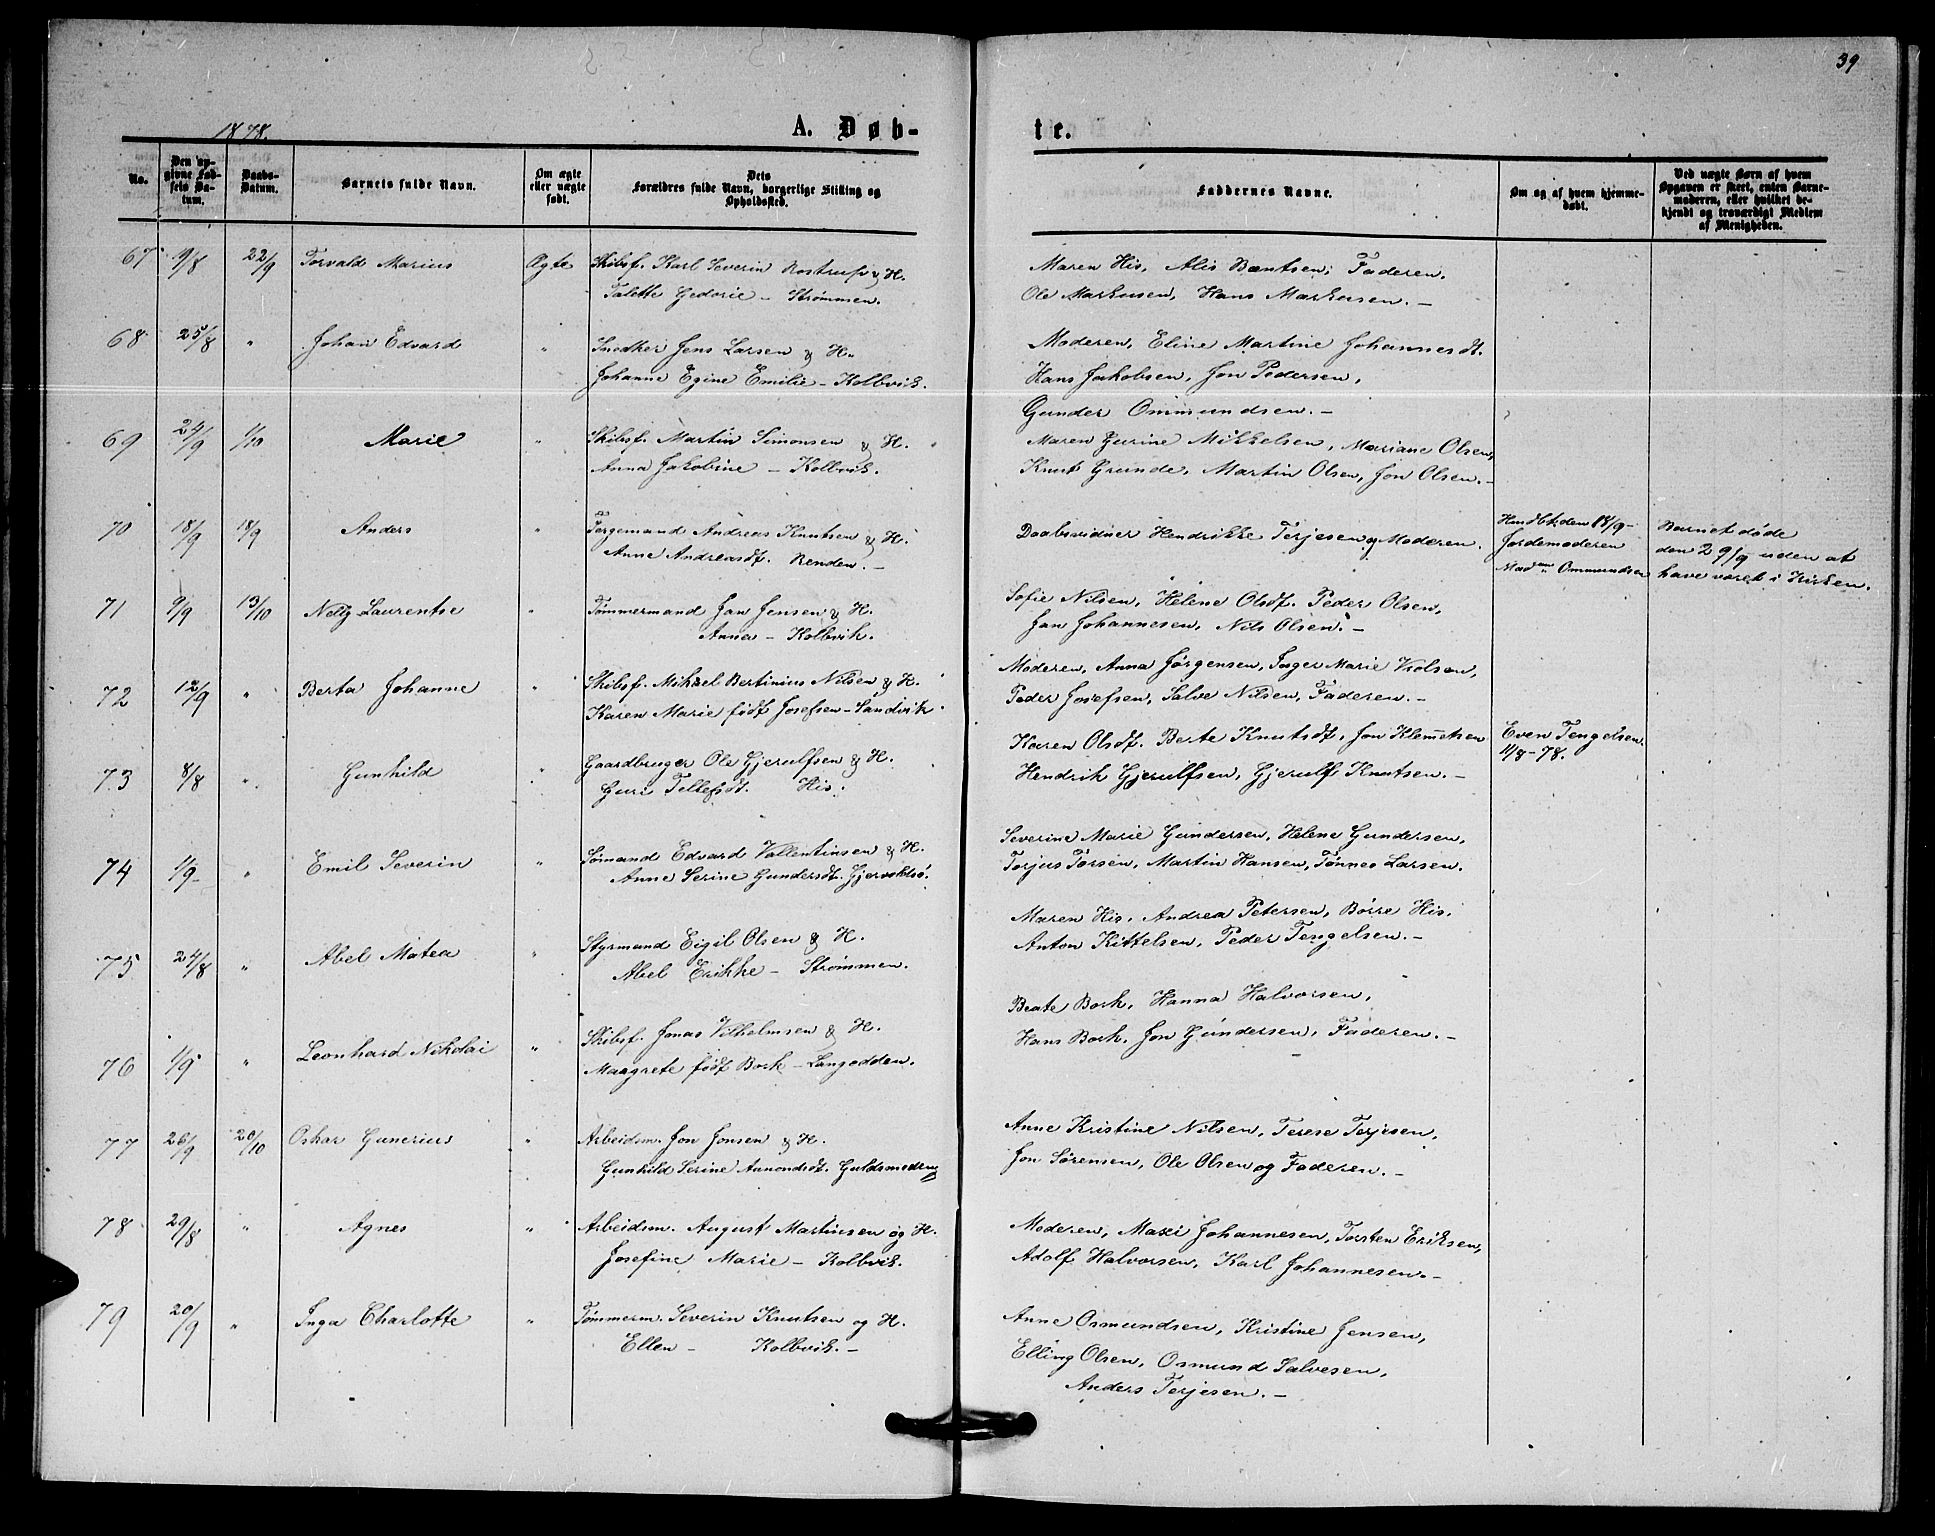 39
1878.
A. Døb-
te.
No.
Den op-
givne Fød-
sels Da-
tum.
Daabs-
Datum.
Barnets fulde Navn.
Om ægte
eller uægte
født.
Dets
Forældres fulde Navn, borgerlige Stilling og
Opholdssted.
Faddernes Navne.
Om og af hvem hjemme-
døbt.
Ved uægte Børn af hvem
Opgaven er skeet, enten Barne-
moderen, eller hvilket be-
kjendt og troværdigt Medlem
af Menigheden.
67 9/8 22/9 Torvald Marius Ægte Skibsf. Karl Severin Rostrup & H. Maren His, Alis Bæntsen, Faderen,
Talette Gedorie – Strømmen. Ole Markusen, Hans Markusen. –
68 25/8 " Johan Edvard " Snedker Jens Larsen & H. Moderen, Eline Martine Johannesdt.
Johanne Egine Emilie – Kolbvik. Hans Jakobsen, Jon Pedersen,
Gunder Ommundsen. –
69 24/9 1/10 Marie " Skibsf. Martin Simonsen & H. Maren Gurine Mikkelsen, Mariane Olsen,
Anna Jakobine – Kolbvik. Knut Grunde, Martin Olsen, Jon Olsen. –
70 18/9 18/9 Anders " Fergemand Andreas Knutsen & H. Daabsvidner Hendrikke Terjesen og Moderen. Hmdbt. den 18/9 – Barnet døde
Anne Andreasdt. Renden. – Jordemoderen den 29/9 uden at
Madm. Ommundsen have været i Kirken.
71 9/9 13/10 Nelly Laurentse " Tømmermand Jan Jensen & H. Sofie Nilsen, Helene Olsdt. Peder Olsen,
Anna – Kolbvik. Jan Johannesen, Nils Olsen. –
72 12/9 " Berta Johanne " Skibsf. Mikael Bertinius Nilsen & H. Moderen, Anna Jørgensen, Inger Marie Kolsen,
Karen Marie født Josefsen – Sandvik. Peder Josefsen, Salve Nilsen, Faderen. –
73 8/8 " Gunhild " Gaardbruger Ole Gjerulfsen & H. Karen Olsdt. Berte Knutsdt, Jon Klemetsen Even Tengelsen.
Guri Tellefsdt. His. Hendrik Gjerulfsen, Gjerulf Knutsen. – 11/8 – 78.
74 1/9 " Emil Severin " Sømand Edvard Vallentinsen & H. Severine Marie Gundersen, Helene Gundersen,
Anne Serine Gundersdt. Gjervoldsø. Torjus Torsen, Martin Hansen, Tønnes Larsen.
75 24/8 " Abel Matea " Styrmand Eigil Olsen & H. Maren His, Andrea Petersen, Børre His,
Abel Erikke – Strømmen. Anton Kittelsen, Peder Tengelsen. –
76 1/9 " Leonhard Nikolai " Skibsf. Jonas Vilhelmsen & H. Beate Bork, Hanna Halvorsen,
Maagrete født Bork – Langodden. Hans Bork, Jon Gundersen, Faderen. –
77 26/9 20/10 Oskar Gunerius " Arbeidsm. Jon Jonsen & H. Anne Kristine Nilsen, Terese Terjesen,
Gunhild Serine Amondsdt. Guldsmedeng Jon Sørensen, Ole Olsen og Faderen. –
78 29/8 " Agnes " Arbeidsm. August Martinsen og H. Moderen, Maxi Johannesen, Torsten Eriksen,
Josefine Marie – Kolbvik. Adolf Halvorsen, Karl Johannesen. –
79 20/9 " Inga Charlotte " Tømmerm. Severin Knutsen og H. Anne Osmundsen, Kristine Jensen,
Ellen – Kolbvik. – Elling Olsen, Osmund Salvesen,
Anders Terjesen. –